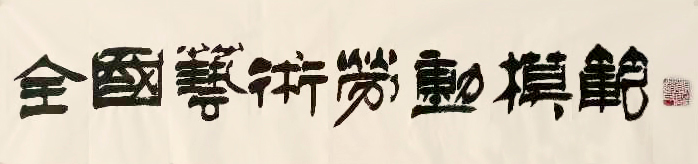 全國藝術勞動模範